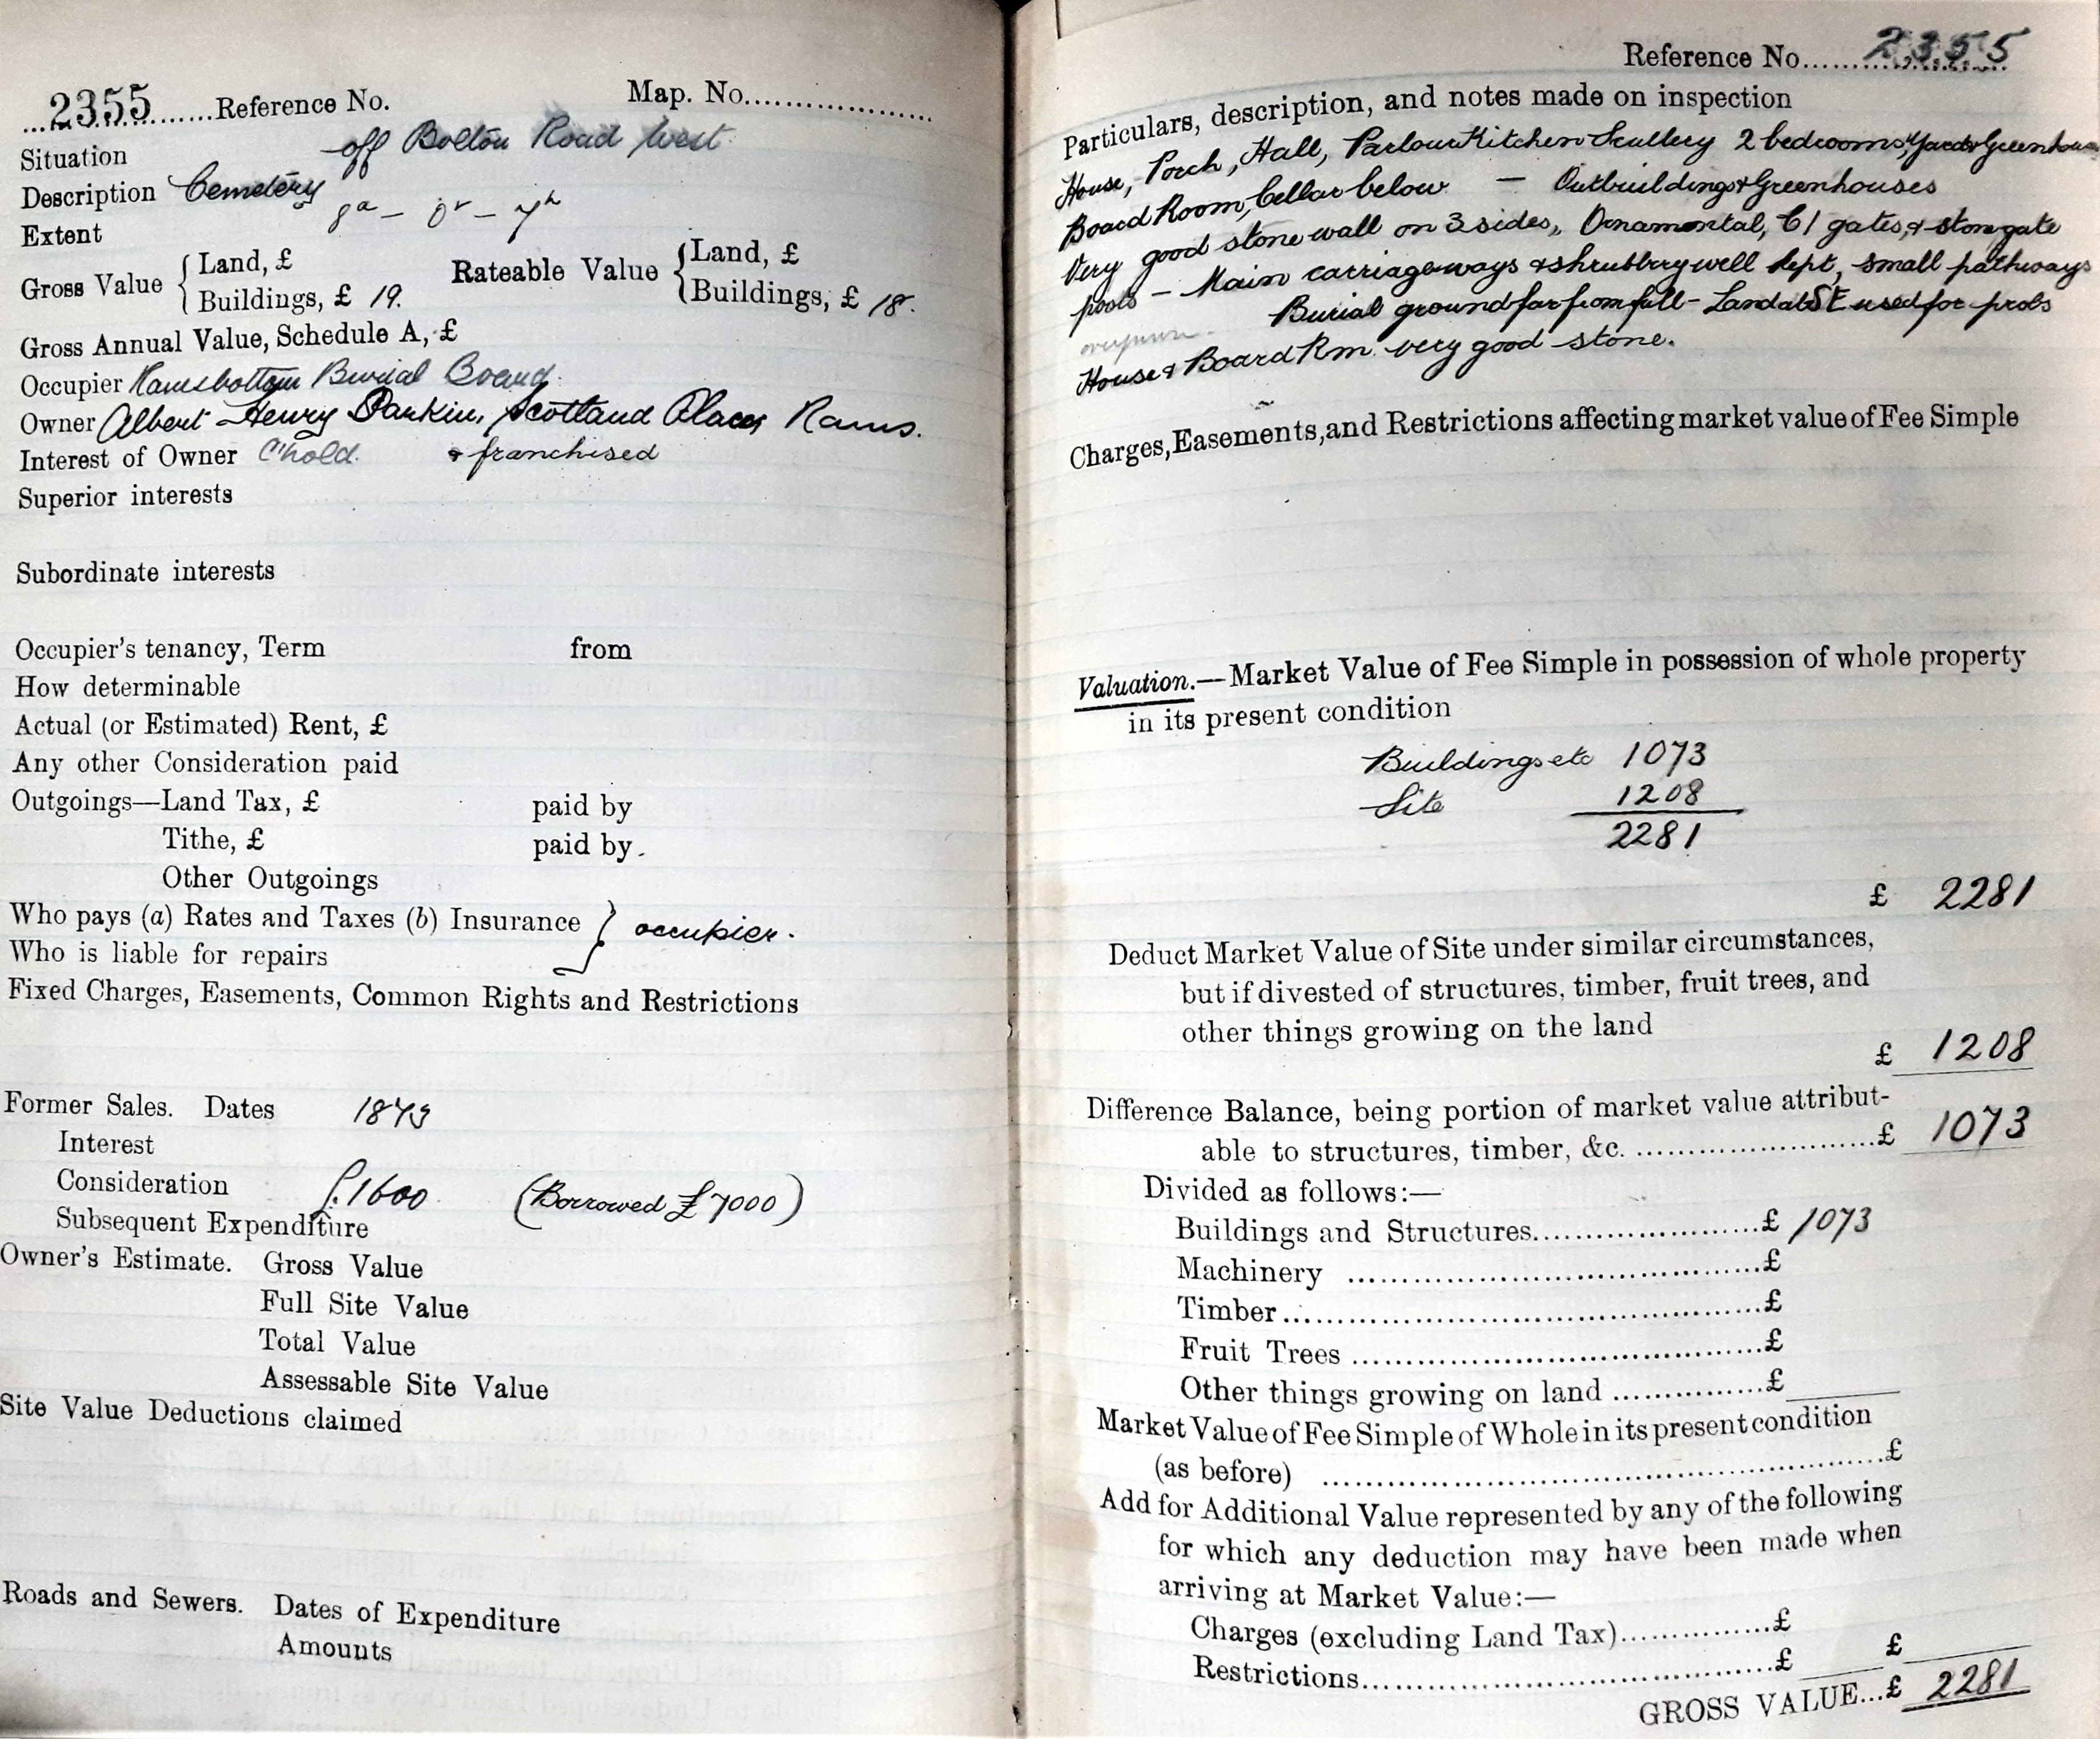 2355 Reference No. Map. No.
Situation off Bolton Road West.
Description Cemetery
Extent 8a - 0r - 7
Gross Value { Land, £ Rateable Value { Land, £
Buildings, £ 19. Buildings, £ 18.
Gross Annual Value, Schedule A, £
Occupier Ramsbottom Burial Board.
Owner Albert Henry Parkin, Scotland Place, Rams.
Interest of Owner C'hold. & franchised
Superior interests
Subordinate interests
Occupier's tenancy, Term from
How determinable
Actual (or Estimated) Rent, £
Any other Consideration paid
Outgoings—Land Tax, £ paid by
Tithe, £ paid by
Other Outgoings
Who pays (a) Rates and Taxes (b) Insurance } occupier.
Who is liable for repairs
Fixed Charges, Easements, Common Rights and Restrictions
Former Sales. Dates 1873
Interest
Consideration £1600 (Borrowed £7000)
Subsequent Expenditure
Owner's Estimate. Gross Value
Full Site Value
Total Value
Assessable Site Value
Site Value Deductions claimed
Roads and Sewers. Dates of Expenditure
Amounts
Reference No. 2355
Particulars, description, and notes made on inspection
House, Porch, Hall, Parlour Kitchen Scullery 2 bedrooms, Yard & Greenhouse
Board Room, Cellar below — Outbuildings & Greenhouses
Very good stone wall on 3 sides, Ornamental, C/I gates, & stone gate
posts - Main carriageways & shrubbery well kept, small pathways
overgrown. Burial ground far from full - Land at SE used for
House & Board Rm. very good stone.
Charges, Easements, and Restrictions affecting market value of Fee Simple
Valuation.—Market Value of Fee Simple in possession of whole property
in its present condition
Buildings etc 1073
Site 1208
2281
£ 2281
Deduct Market Value of Site under similar circumstances,
but if divested of structures, timber, fruit trees, and
other things growing on the land
£ 1208
Difference Balance, being portion of market value attribut-
able to structures, timber, &c. £ 1073
Divided as follows:—
Buildings and Structures £ 1073
Machinery £
Timber £
Fruit Trees £
Other things growing on land £
Market Value of Fee Simple of Whole in its present condition
(as before) £
Add for Additional Value represented by any of the following
for which any deduction may have been made when
arriving at Market Value:—
Charges (excluding Land Tax) £
Restrictions £ £
GROSS VALUE...£ 2281